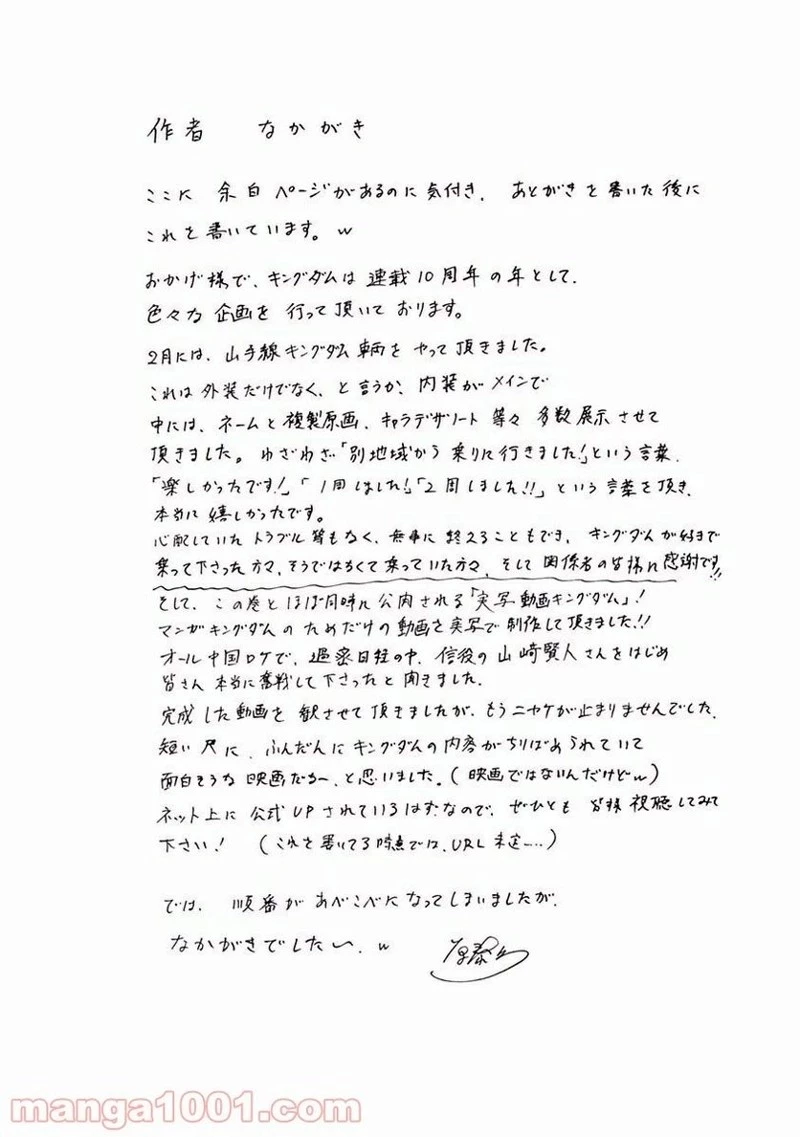 作者 なかがき
ここに 余白ページがあるのに気付き、あとがきを書いた後に
これを書いています。w
おかげ様で、キングダムは連載10周年の年として、
色々な企画を行って頂いております。
2月には、山手線キングダム車両をやって頂きました。
これは外装だけでなく、と言うか、内装がメインで
中には、ネームと複製原画、キャラデザノート等々多数展示させて
頂きました。わざわざ「別地域から乗りに行きました!」という言葉、
「楽しかったです!」「1周しました!」「2周しました!!」という言葉を頂き、
本当に嬉しかったです。
心配していたトラブル等もなく、無事に終えることもでき、キングダムが好きで
乗って下さった方々、そうではなくて乗っていた方々、そして関係者の皆様に感謝です!!
そして、この巻とほぼ同時に公開される「実写動画キングダム」!
マンガキングダムのためだけの動画を実写で制作して頂きました!!
オール中国ロケで、過密日程の中、信役の山﨑賢人さんをはじめ
皆さん本当に奮戦して下さったと聞きました。
完成した動画を観させて頂きましたが、もうニヤケが止まりませんでした。
短い尺に、ふんだんにキングダムの内容がちりばめられていて
面白そうな映画だなー、と思いました。(映画ではないんだけどw)
ネット上に公式UPされているはずなので、ぜひとも皆様視聴してみて
下さい! (これを書いてる時点では、URL未定……)
では、順番があべこべになってしまいましたが、
なかがきでしたー、w 原泰久
manga1001.com